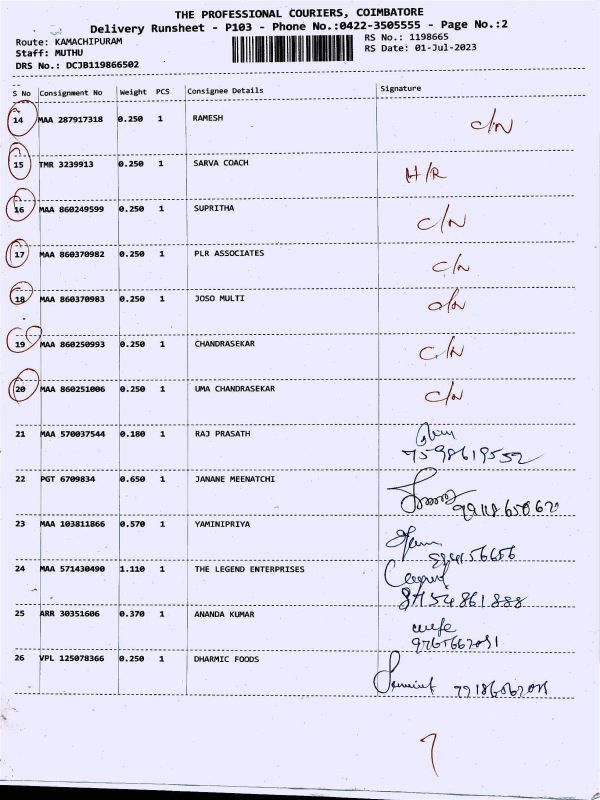 THE PROFESSIONAL COURIERS, COIMBATORE
Delivery Runsheet - P103 - Phone No.:0422-3505555 - Page No.:2
Route: KAMACHIPURAM RS No.: 1198665
Staff: MUTHU RS Date: 01-Jul-2023
DRS No.: DCJB119866502
S No Consignment No Weight PCS Consignee Details Signature
14 MAA 287917318 0.250 1 RAMESH C/N
15 TMR 3239913 0.250 1 SARVA COACH H/R
16 MAA 860249599 0.250 1 SUPRITHA C/N
17 MAA 860370982 0.250 1 PLR ASSOCIATES C/N
18 MAA 860370983 0.250 1 JOSO MULTI
19 MAA 860250993 0.250 1 CHANDRASEKAR C/N
20 MAA 860251006 0.250 1 UMA CHANDRASEKAR C/N
21 MAA 570037544 0.180 1 RAJ PRASATH
7598619552
22 PGT 6709834 0.650 1 JANANE MEENATCHI
23 MAA 103811866 0.570 1 YAMINIPRIYA
24 MAA 571430490 1.110 1 THE LEGEND ENTERPRISES
25 ARR 30351606 0.370 1 ANANDA KUMAR
wife
26 VPL 125078366 0.250 1 DHARMIC FOODS
7